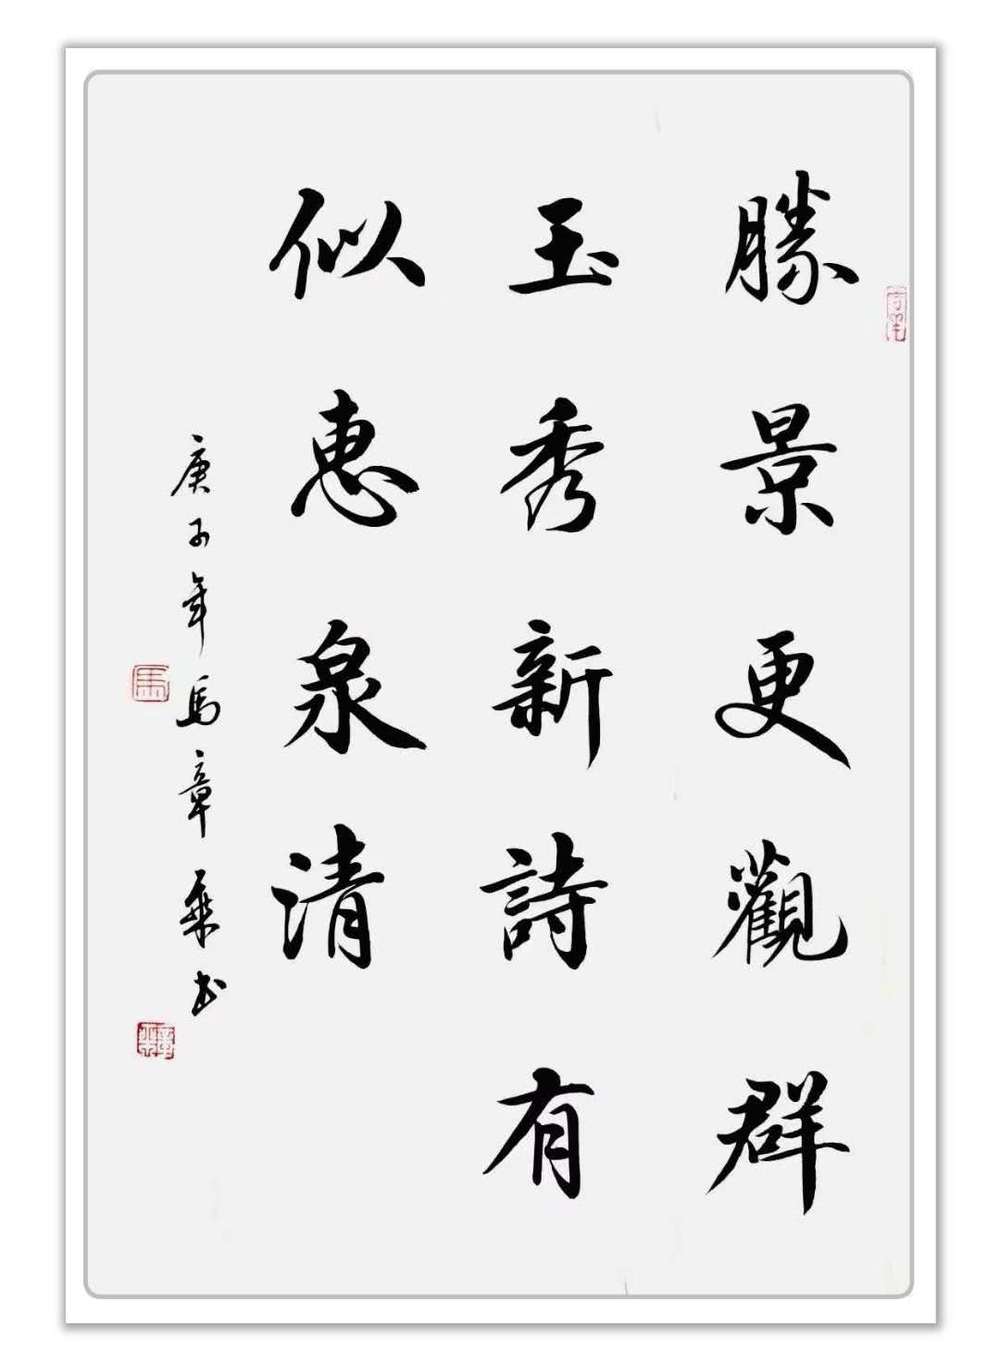 勝景更觀群
玉秀新詩有
似惠泉清
庚子年馬章乘书
馬